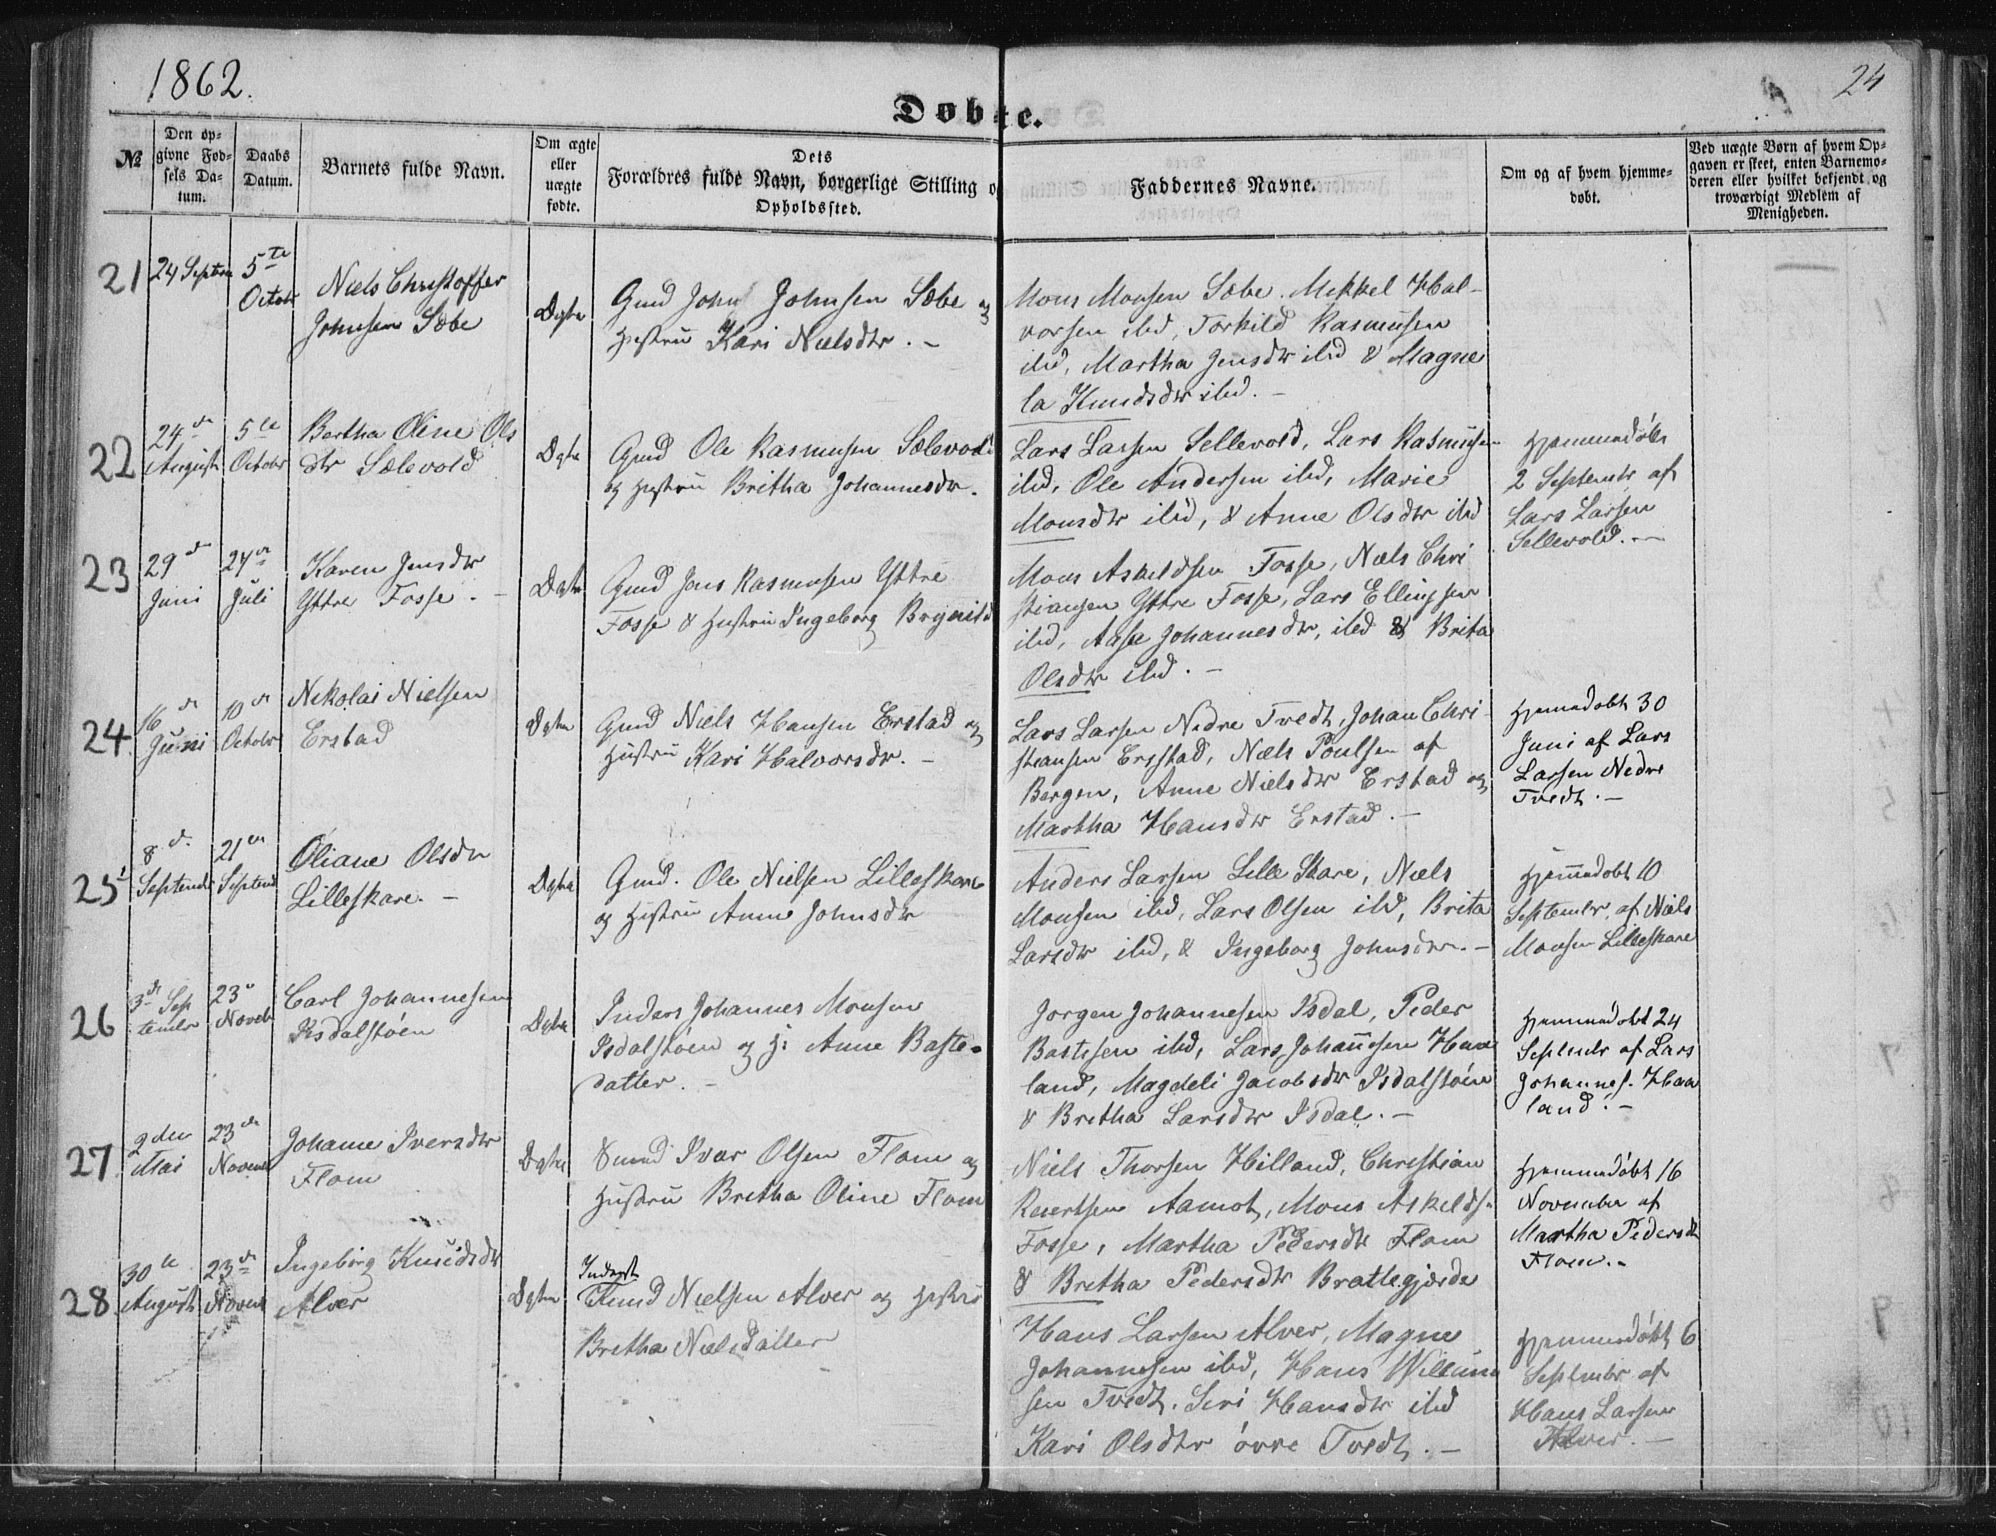 1862.
24
Døbte.
№
Den op-
givne Fød-
sels Da-
tum.
Daabs
Datum.
Barnets fulde Navn.
Om ægte
eller
uægte
fødte.
Dets
Forældres fulde Navn, borgerlige Stilling og
Opholdssted.
Faddernes Navne.
Om og af hvem hjemme-
døbt.
Ved uægte Børn af hvem Op-
gaven er skeet, enten Barnemo-
deren eller hvilket bekjendt og
troværdigt Medlem af
Menigheden.
21
24 Septem
5te
Octobr
Niels Christoffer
Johnsen Sæbe
Gmd John Johnsen Sæbe og
Hustru Kari Nielsdtr. -
Mons Monsen Sæbe. Mikkel Hal-
vorsen ibd, Torkild Rasmusen
ibd, Martha Jensdtr ibd & Magne
la Knudsdtr ibd. -
22
24de
August
5te
Octobr
Bertha Oline Ols
dtr Sælevold
Gmd Ole Rasmusen Sælevold
og Hustru Britha Johannesdtr.
Lars Larsen Sellevold, Lars Rasmusen
ibd, Ole Andersen ibd, Marie
Monsdtr ibid, & Anne Olsdtr ibd
Hjemmedøbt
2 Septembr af
Lars Larsen
Sellevold. -
23
29de
Juni
24de
Juli
Karen Jensdtr
Yttre Fosse. -
Gmd Jens Rasmusen Yttre
Fosse & Hustru Ingeborg Brynild
Mons Askeldsen Fosse, Niels Chri
stiansen Yttre Fosse, Lars Ellingsen
ibd, Aase Johannesdtr, ibd & Brita
Olsdtr ibd. -
24
16de
Juni
10de
Octobr
Nikolai Nielsen
Erstad
Gmd Niels Hansen Erstad og
Hustru Kari Halvorsdtr. -
Lars Larsen Nedre Tvedt, Johan Chri-
stiansen Erstad, Niels Poulsen af
Bergen, Anne Nielsdtr Erstad og
Martha Hansdtr Erstad. -
Hjemmedøbt 30
Juni af Lars
Larsen Nedre
Tvedt. -
25
8de
September
21de
Septemb
Oliane Olsdtr
Lilleskare. -
Gmd. Ole Nielsen Lilleskare
og Hustru Anne Johnsdtr
Anders Larsen Lille Skare, Niels
Monsen ibd, Lars Olsen ibd, Brita
Larsdtr ibd, & Ingeborg Johnsdtr. -
Hjemmedøbt 10
Septembr. af Niels
Monsen Lilleskare
26
3de Sep
tembr
23de
Novb
Carl Johannesen
Isdalstøen
Inders Johannes Monsen
Isdalstøen og H: Anne Baste-
datter. -
Jørgen Johannesen Isdal, Peder
Bastesen ibd, Lars Johannesen Haa
land, Magdeli Jacobsdtr Isdalstøen
& Bretha Larsdtr Isdal. -
Hjemmedøbt 24
Septembr af Lars
Johannes. Haa
land. -
27
9den
Mai
23de
Novemb
Johanne Iversdtr
Flom
Gmd Ivar Olsen Flom og
Hustru Bretha Oline Flom
Niels Thorsen Hilland, Christian
Aamot, Mons Askelds.
Fosse, Martha Pedersdtr Flom
& Bretha Pedersdtr Brattegjerde
Hjemmedøbt 16
November af
Martha Pedersdtr
Flom. -
28
30te
August
23de
Novem
Ingeborg Knudsdtr
Alver
Inderst
Knud Nielsen Alver og Hustru
Bretha Nielsdatter
Hans Larsen Alver, Magne
Johannesen ibd, Hans Willum
sen Tvedt. Siri Hansdtr ibd
Kari Olsdtr øvre Tvedt. -
Hjemmedøbt 6
Septembr af
Hans Larsen
Alver. -